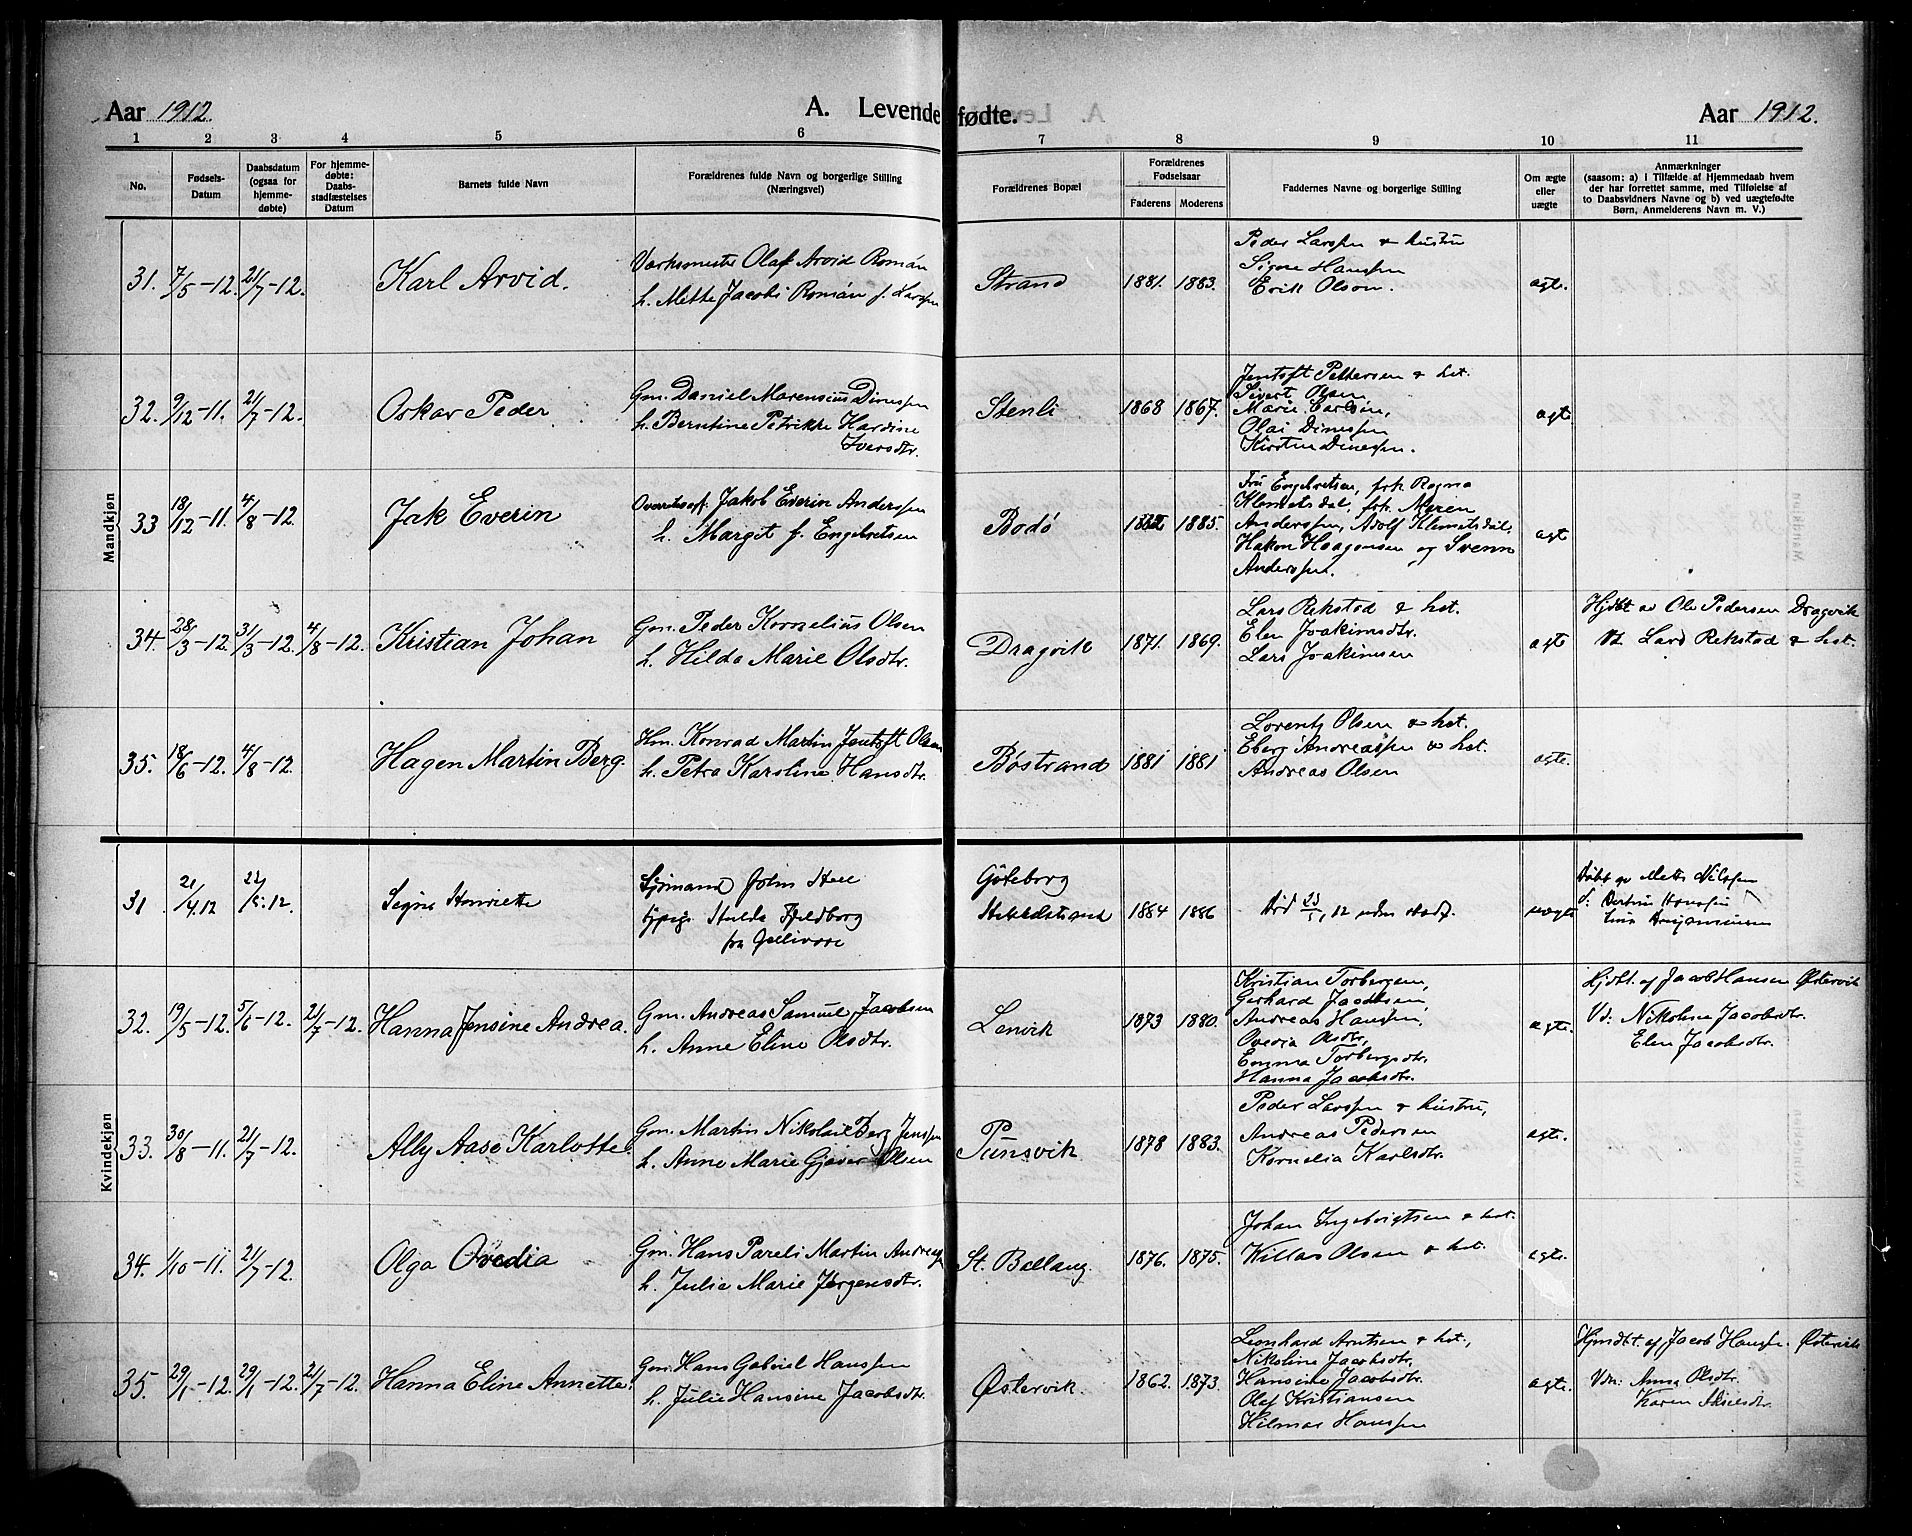 Aar 1912. A. Levendefødte. Aar 1912.
1 2 3 4 5 6 7 8 9 10 11
No. Fødsels-Datum Daabsdatum (ogsaa for hjemme-døbte) For hjemme-døbte: Daabs-stadfæstelses Datum Barnets fulde Navn Forældrenes fulde Navn og borgerlige Stilling (Næringsvei) Forældrenes Bopæl Forældrenes Fødselsaar Faderens Moderens Faddernes Navne og borgerlige Stilling Om ægte eller uægte Anmærkninger (saasom: a) i Tilfælde af Hjemmedaab hvem der har forrettet samme, med Tilføielse af to Daabsvidners Navne og b) ved uægtefødte Børn, Anmelderens Navn m. V.)
Mandkjøn
31. 7/5-12. 21/7-12. Karl Arvid.
Værksmester Olaf Arvid Román
h. Mette Jacobi Román f. Larsen
Strand 1881. 1883.
Peder Larssen & hustru
Signe Hanssen
Erik Olson.
ægte.
32. 9/12-11. 21/7-12. Oskar Peder
Gm. Daniel Marensius Dinessen
h. Berntine Petrikke Hardine
Iversdtr.
Stenli. 1868 1867.
Jentoft Pettersen & hst.
Sivert Olsen
Marie Carlsen,
Olai Dinessen
Kirsten Dinessen.
ægte
33 18/12-11. 4/8-12. Jak Everin
Jakob Everin Anderssen
h. Margit f. Engebretsen
Bodø 1885.
Fru Engebretsen, frk. Ragna
Klemetsdal, frk. Maren
Anderssen, Adolf Klemetsdal,
Hakon Haagensen og Svenn
Anderssen.
ægt
34. 28/3-12. 31/3-12. 4/8-12. Kristian Johan
Gm. Peder Kornelius Olsen
h. Hilda Marie Olsdtr.
Dragvik 1871. 1869.
Lars Rekstad & hst.
Elen Joakimsdtr.
Lars Joakimsen
ægte
Hjdbt av Ole Pedersen Dragvik
Vd. Lars Rekstad & hst.
35. 18/6-12. 4/8-12. Hagen Martin Berg.
Hm. Konrad Martin Jentoft Olsen
h. Petra Karoline Hansdtr.
Bøstrand 1881 1881
Lorentz Olsen & hst.
Eberg Andreassen & hst.
Andreas Olsen
ægte.
Kvindekjøn
31 21/4.12 22/5.12. Signe Henriette
Sjømand John
pige Hulda Fjeldborg
fra Gellivare
Göteborg
1884 1886
Død 23/5, 12 uden
uægte
Døbt av Mette Nilssen
32. 19/5-12. 5/6-12. 21/7-12. Hanna Jensine Andrea.
Gm. Andreas Samuel Jacobsen
h. Anne Eline Olsdtr.
Lenvik 1873 1880.
Kristian Torbergsen,
Gerhard Jacobsen
Andreas Hanssen,
Ovedia Olsdtr,
Emma Torbergsdtr.
Hanna Jacobsdtr.
ægte.
Hjdbt. af Jacob Hansen Østervik
Vd: Nikoline Jacobsdtr.
Elen Jacobsdtr.
33. 30/8-11. 21/7-12. Ally Aase Karlotte.
Gm. Martin Nikolai Berg Jenssen
h. Anne Marie Gjæver Olsen
Pünsvik 1878 1883.
Peder Larssen & hustru,
Andreas Pedersen
Kornelia Karlsdtr.
ægte.
34. 1/10-11. 21/7-12. Olga Ovedia
Gm. Hans Pareli Martin Andreas
h. Julie Marie Jørgensdtr.
St. Ballang. 1876. 1875.
Johan Ingebrigtsen & hst.
Willas Olsen & hst.
ægte.
35. 29/1-12. 29/1-12. 21/7-12. Hanna Eline Annette.
Gm. Hans Gabriel Hanssen
h. Julie Hansine Jacobsdtr.
Østervik. 1862. 1873.
Leonhard Arntsen & hst.,
Nikoline Jacobsdtr.
Hansine Jacobsdtr.
Olaf Kristiansen
Hilmar Hanssen
ægte.
Hjmdbt. af Jacob Hanssen. Østervik
Vdn: Anna Olsdtr.
Karen Akselsdtr.